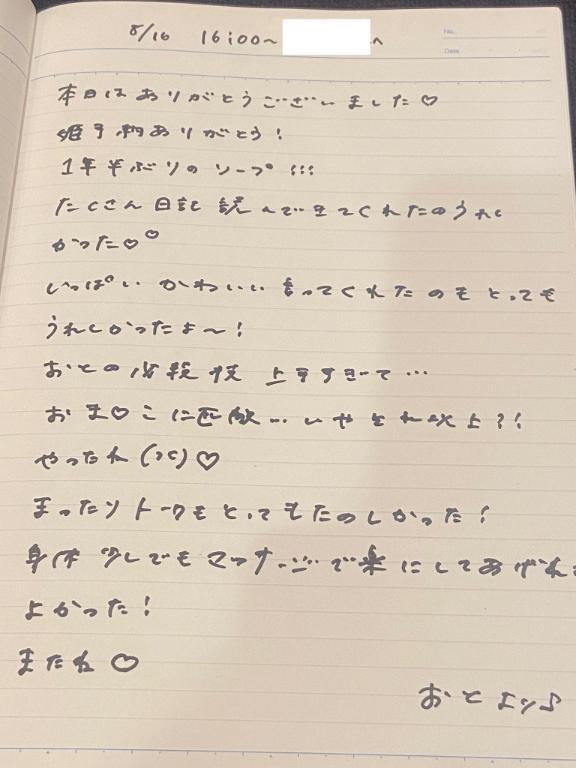 8/16 16:00〜 へ
No.
Date
本日はありがとうございました♡
姫予約ありがとう!
1年半ぶりのソープ!!!
たくさん日記読んできてくれたのうれし
かった♡♡
いっぱいかわいい言ってくれたのもとっても
うれしかったよ〜!
おとの必殺技 上手すぎて…
おま♡こに匹敵…いやそれ以上?!
やったね(><)♡
まったりトークもとってもたのしかった!
身体少しでもマッサージで楽にしてあげれて
よかった!
またね♡
おとより♪